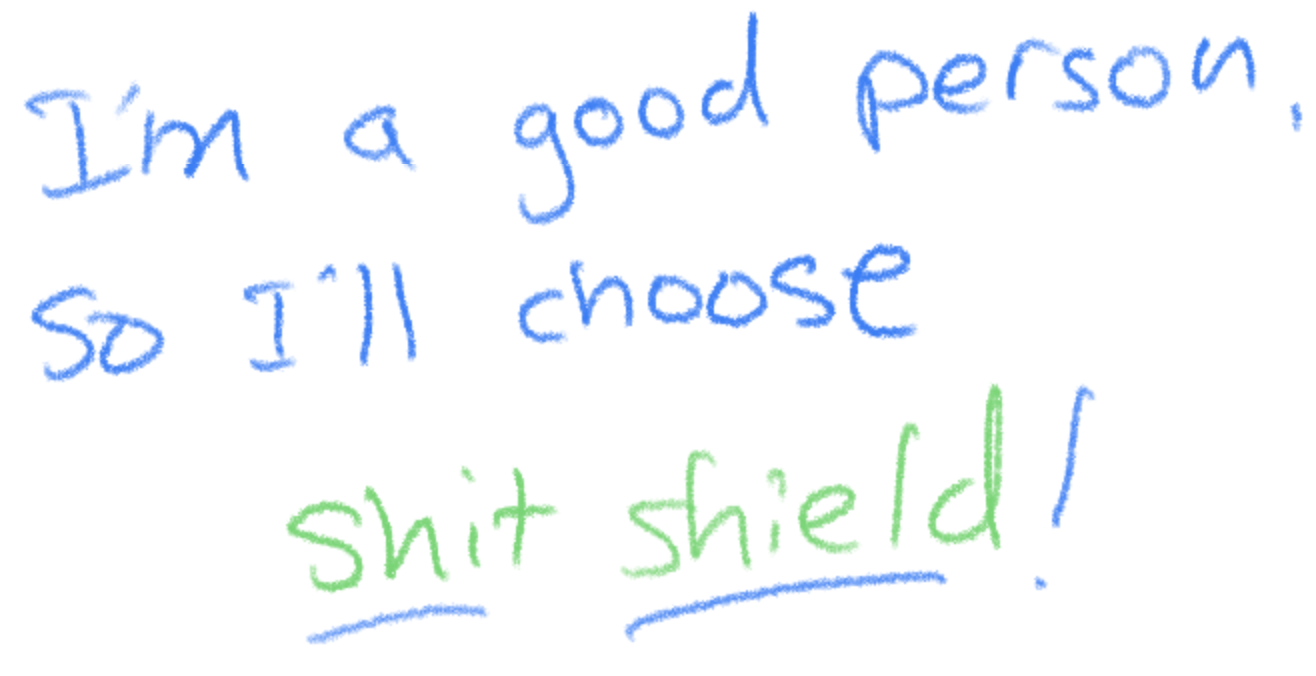 I'm a good person.
So I'll choose
shit shield!